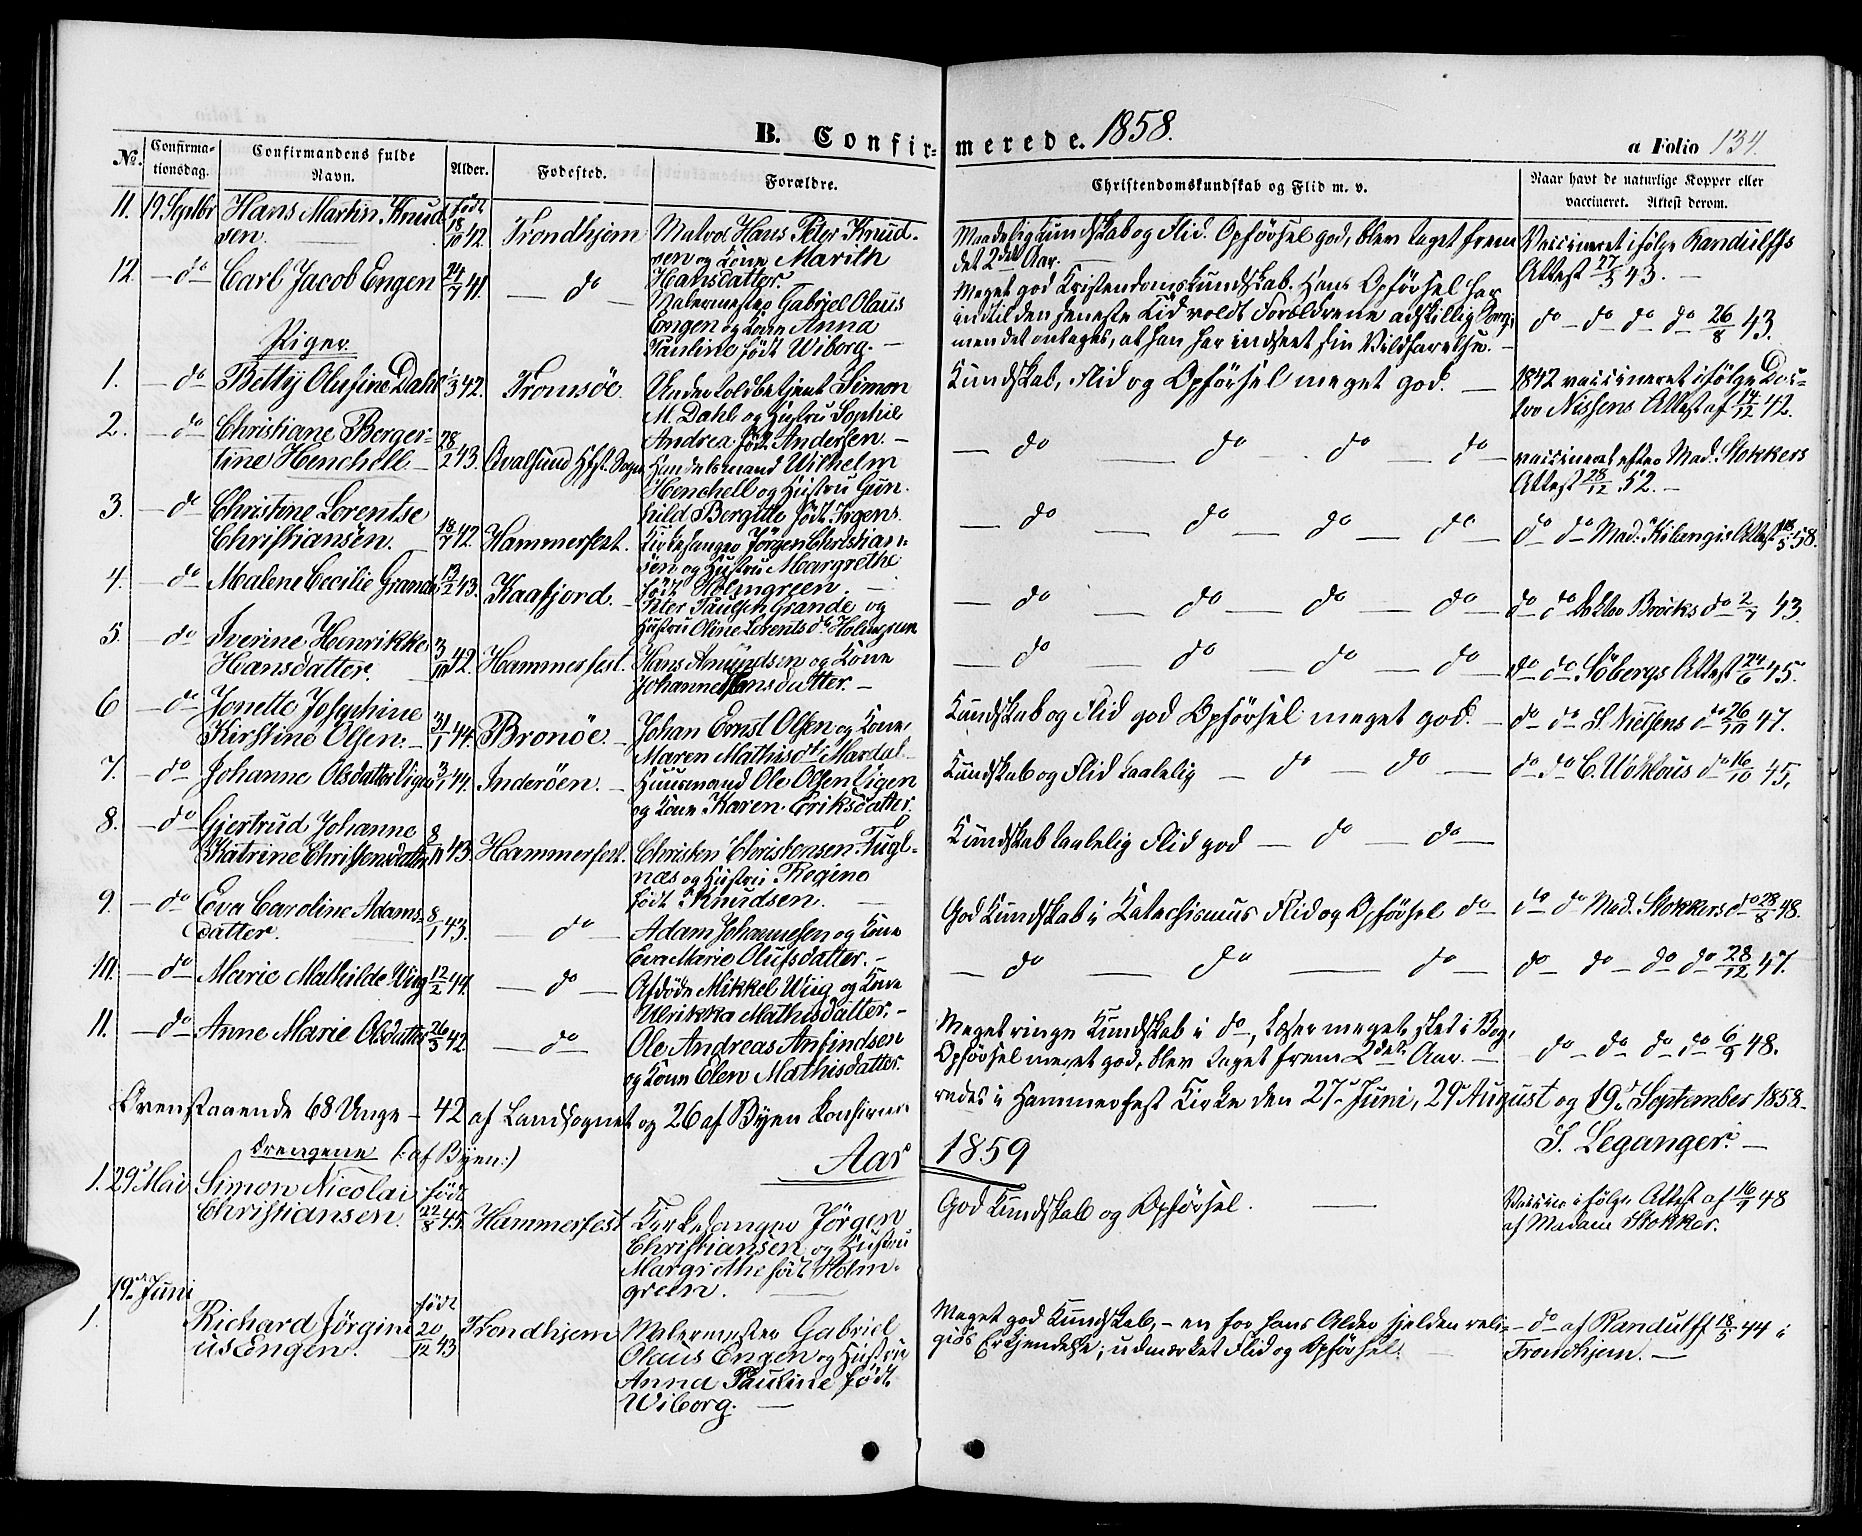 B. Confir= merede. 1858.
a Folio 134.
No. Confirma-tionsdag. Confirmandens fulde Navn. Alder. Fødested. Forældre. Christendomskundskab og Flid m. v. Naar havt de naturlige Kopper eller vaccineret. Attest derom.
11. 19 Septbr Hans Martin Knud- født Trondhjem Matros Hans Peter Knud- Maadelig Kundskab og Flid. Opførsel god, blev taget frem Vaccineret ifølge Randulffs
sen. 18/10 42. sen og Kone Marith det 2det Aar. — Attest 27/5 43. —
12 — do — Carl Jacob Engen 24/7 41. — do — Hansdatter. Meget god Kristendomskundskab. Hans Opførsel har
Malermester Gabriel Olaus indtil den seneste Tid voldt Forældrene adskillig Sorg, do — do do do 26/8 43.
Engen og Kone Anna men det antages, at han har indseet sin Vildfarelse. —
Piger. Pauline født Wiborg. —
1. — do Betty Olufine Dahl 1/3 42. Tromsöe. Undertoldbetjent Simon Kundskab, Flid og Opførsel meget god. — 1842 vaccineret ifølge Doc-
M. Dahl og Hustru Sophie tor Nissens Attest af 14/12 42.
2. — do Christiane Berger- 28/2 43. Qvalsund Hfst. Sogn Andrea født Andersen. — — do — do — do — do — vaccineret efter Mad. Stokkers
tine Henchell — Handelsmand Wilhelm Attest 28/12 52. —
Henchell og Hustru Gun-
3. — do Christine Lorentse 18/7 42. Hammerfest. hild Bergitte født Irgens. — do — do — do — do — do do Mad. Kilangis Attest 18/5 58.
Christiansen. Kirkesanger Jörgen Christian-
sen og Hustru Margrethe
4. — do — Malene Cecilie Grande 13/2 43. Kaafjord. — født Holmgreen. — — do — do — do — do — do do Doktor Brocks do 2/7 43.
Peter Paulsen Grande og
Hustru Oline Lorents dr Holmgreen
5. — do — Iverine Henrikke 3/10 42. Hammerfest. Hans Amundsen og Kone — do — do — do — do — do do Söbergs Attest 24/6 45.
Hansdatter. Johanne Hansdatter. —
6 — do — Jonette Josephine 31/1 44. Bronöe. — Johan Ernst Olsen og Kone Kundskab og Flid god Opførsel meget god. — do do S. Nielsens do 26/10 47.
Kirstine Olsen. — Maren Mathisdtr Mardal
7. — do — Johanne Olsdatter Vigen 3/1 44. Inderöen. — Huusmand Ole Olsen Vigen Kundskab og Flid taalelig — do — do — do do C. Udhous do 16/10 45.
og Kone Karen Eriksdatter.
8. — do — Gjertrud Johanne 8/10 43. Hammerfest. Christen Christensen Fugl- Kundskab taalelig Flid god — do — do —
Katrine Christensdatter næs og Hustru Regine
født Knudsen. —
9. — do Eva Caroline Adams- 8/1 43. — do — Adam Johannesen og Kone God Kundskab i Katechismus Flid og Opførsel do — do do Mad. Stokkers do 28/8 48.
datter. Eva Marie Olufsdatter. —
10. — do — Marie Mathilde Wiig 12/2 44. — do — Afdøde Mikkel Wiig og Kone — do — do — do — do — do — do do 28/12 47.
Ulrikka Mathisdatter. —
11. — do — Anne Marie Olsdatter 26/5 42. — do — Ole Andreas Anfindsen Meget ringe Kundskab i do, læser meget slet i Bog,
og Kone Elen Mathisdatter. Opførsel meget god, blev taget frem 2det Aar. — do — do — do do 6/9 48.
Ovenstaaende 68 Unge — 42 af Landsognet og 26 af Byen konfirme- redes i Hammerfest Kirke den 27. Juni, 29 August og 19. September 1858.
S. Leganger. —
Drengene (: af Byen :) Aar 1859
1. 29 Mai Simon Nicolai født Hammerfest Kirkesanger Jörgen God Kundskab og Opførsel. — Vaccin. ifølge Attest af 16/9 48
Christiansen. 22/8 45. Christiansen og Hustru af Madam Stokker.
Margrethe født Holm-
green. —
19. Juni
1. Richard Jörgini- født Trondhjem Malermester Gabriel Meget god Kundskab, — en for hans Alder sjelden reli- — do — af Randulff 18/5 44 i
us Engen. 20/12 43 Olaus Engen og Hustru giös Erkjendelse; udmærket Flid og Opførsel. — Trondhjem. —
Anna Pauline født
Wiborg. —